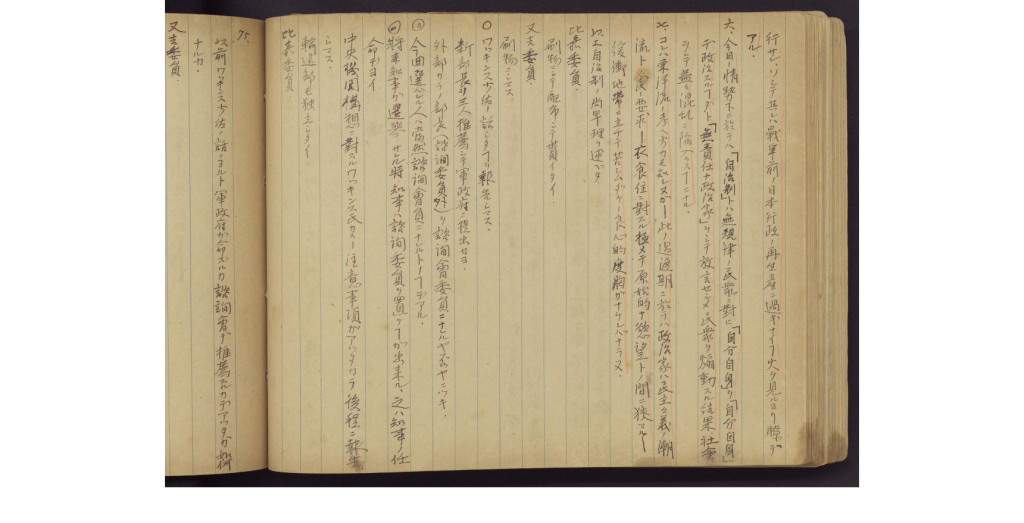 行サレ、ソシテ其レハ戦争前ノ日本行政ノ再生産ニ過ギナイコトヲ見ルヨリ瞭デ
アル.
六、今日ノ情勢下ニ於テハ「自治制」トハ無規律ノ民衆ニ對シ「自分自身ヲ自分自身」
デ政治スルコトダト「無責任ナ政治家」ヲシテ放言セシメ民衆ヲ煽動スル結果、社會
ヲシテ混乱ニ陥ラス
七、コレハ東洋流ノ考ヘ方カモ知レヌガ、此ノ過渡期ニ於テハ政治家ハ民主々義ノ潮
流ト食ノ要求ト衣食住ニ對スル極メテ原始的ナ慾望トノ間ニ狭マルル
緩衝地帶ニ立ッテ苦シムダケノ良心的度胸ガナケレバナラヌ.
以上自治制ノ尚早理ヲ述ブ
比嘉委員.
刷物ニシテ配布シテ貰イタイ.
又吉委員.
刷物ニシマス.
○ワッキンス少佐ノ話シタコトヲ報告シマス.
新部長ヲ三人推薦シテ軍政府ニ提出セヨ.
外部カラノ部長(諮詢委員外)ヲ諮詢會委員ニナシルヤ否ヤニツキ
今回選バレル人ハ當然諮詢會員ニナレルトノコトデアル.
將來知事ガ選擧サレル時知事ハ諮詢委員ヲ置クコトガ出來ル、之ハ知事ノ任
命デヨイ
中央機関構想ニ對スルワッキンス氏カラノ注意事項ガアッタカラ後程ニ報告
シマス.
輸送部モ独立シタイ.
比嘉委員.
75.
以前ワッキンス少佐ノ話ニヨルト軍政府ガ命ズルカ諮詢會デ推薦スルカデアッタガ如何
ナルカ.
又吉委員.